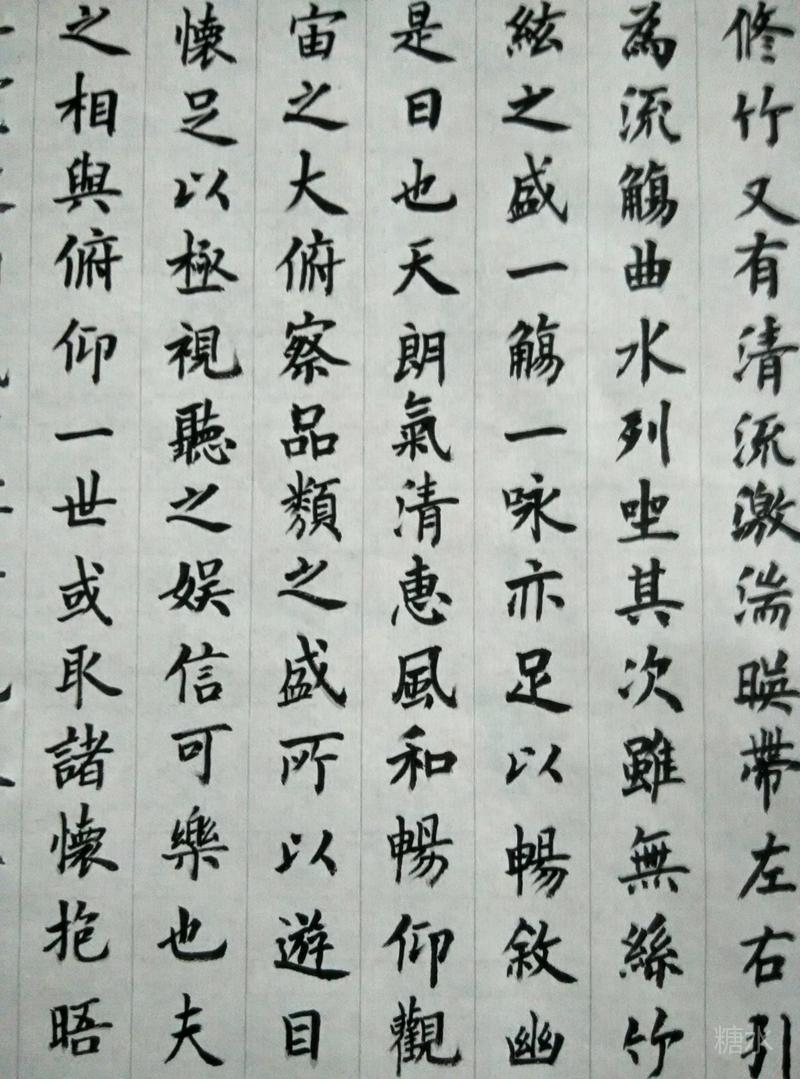 修竹又有清流激湍暎帶左右引
為流觴曲水列坐其次雖無絲竹
絃之盛一觴一咏亦足以暢敘幽
是日也天朗氣清惠風和暢仰觀
宙之大俯察品類之盛所以遊目
懷足以極視聽之娛信可樂也夫
之相與俯仰一世或取諸懷抱晤
糖水